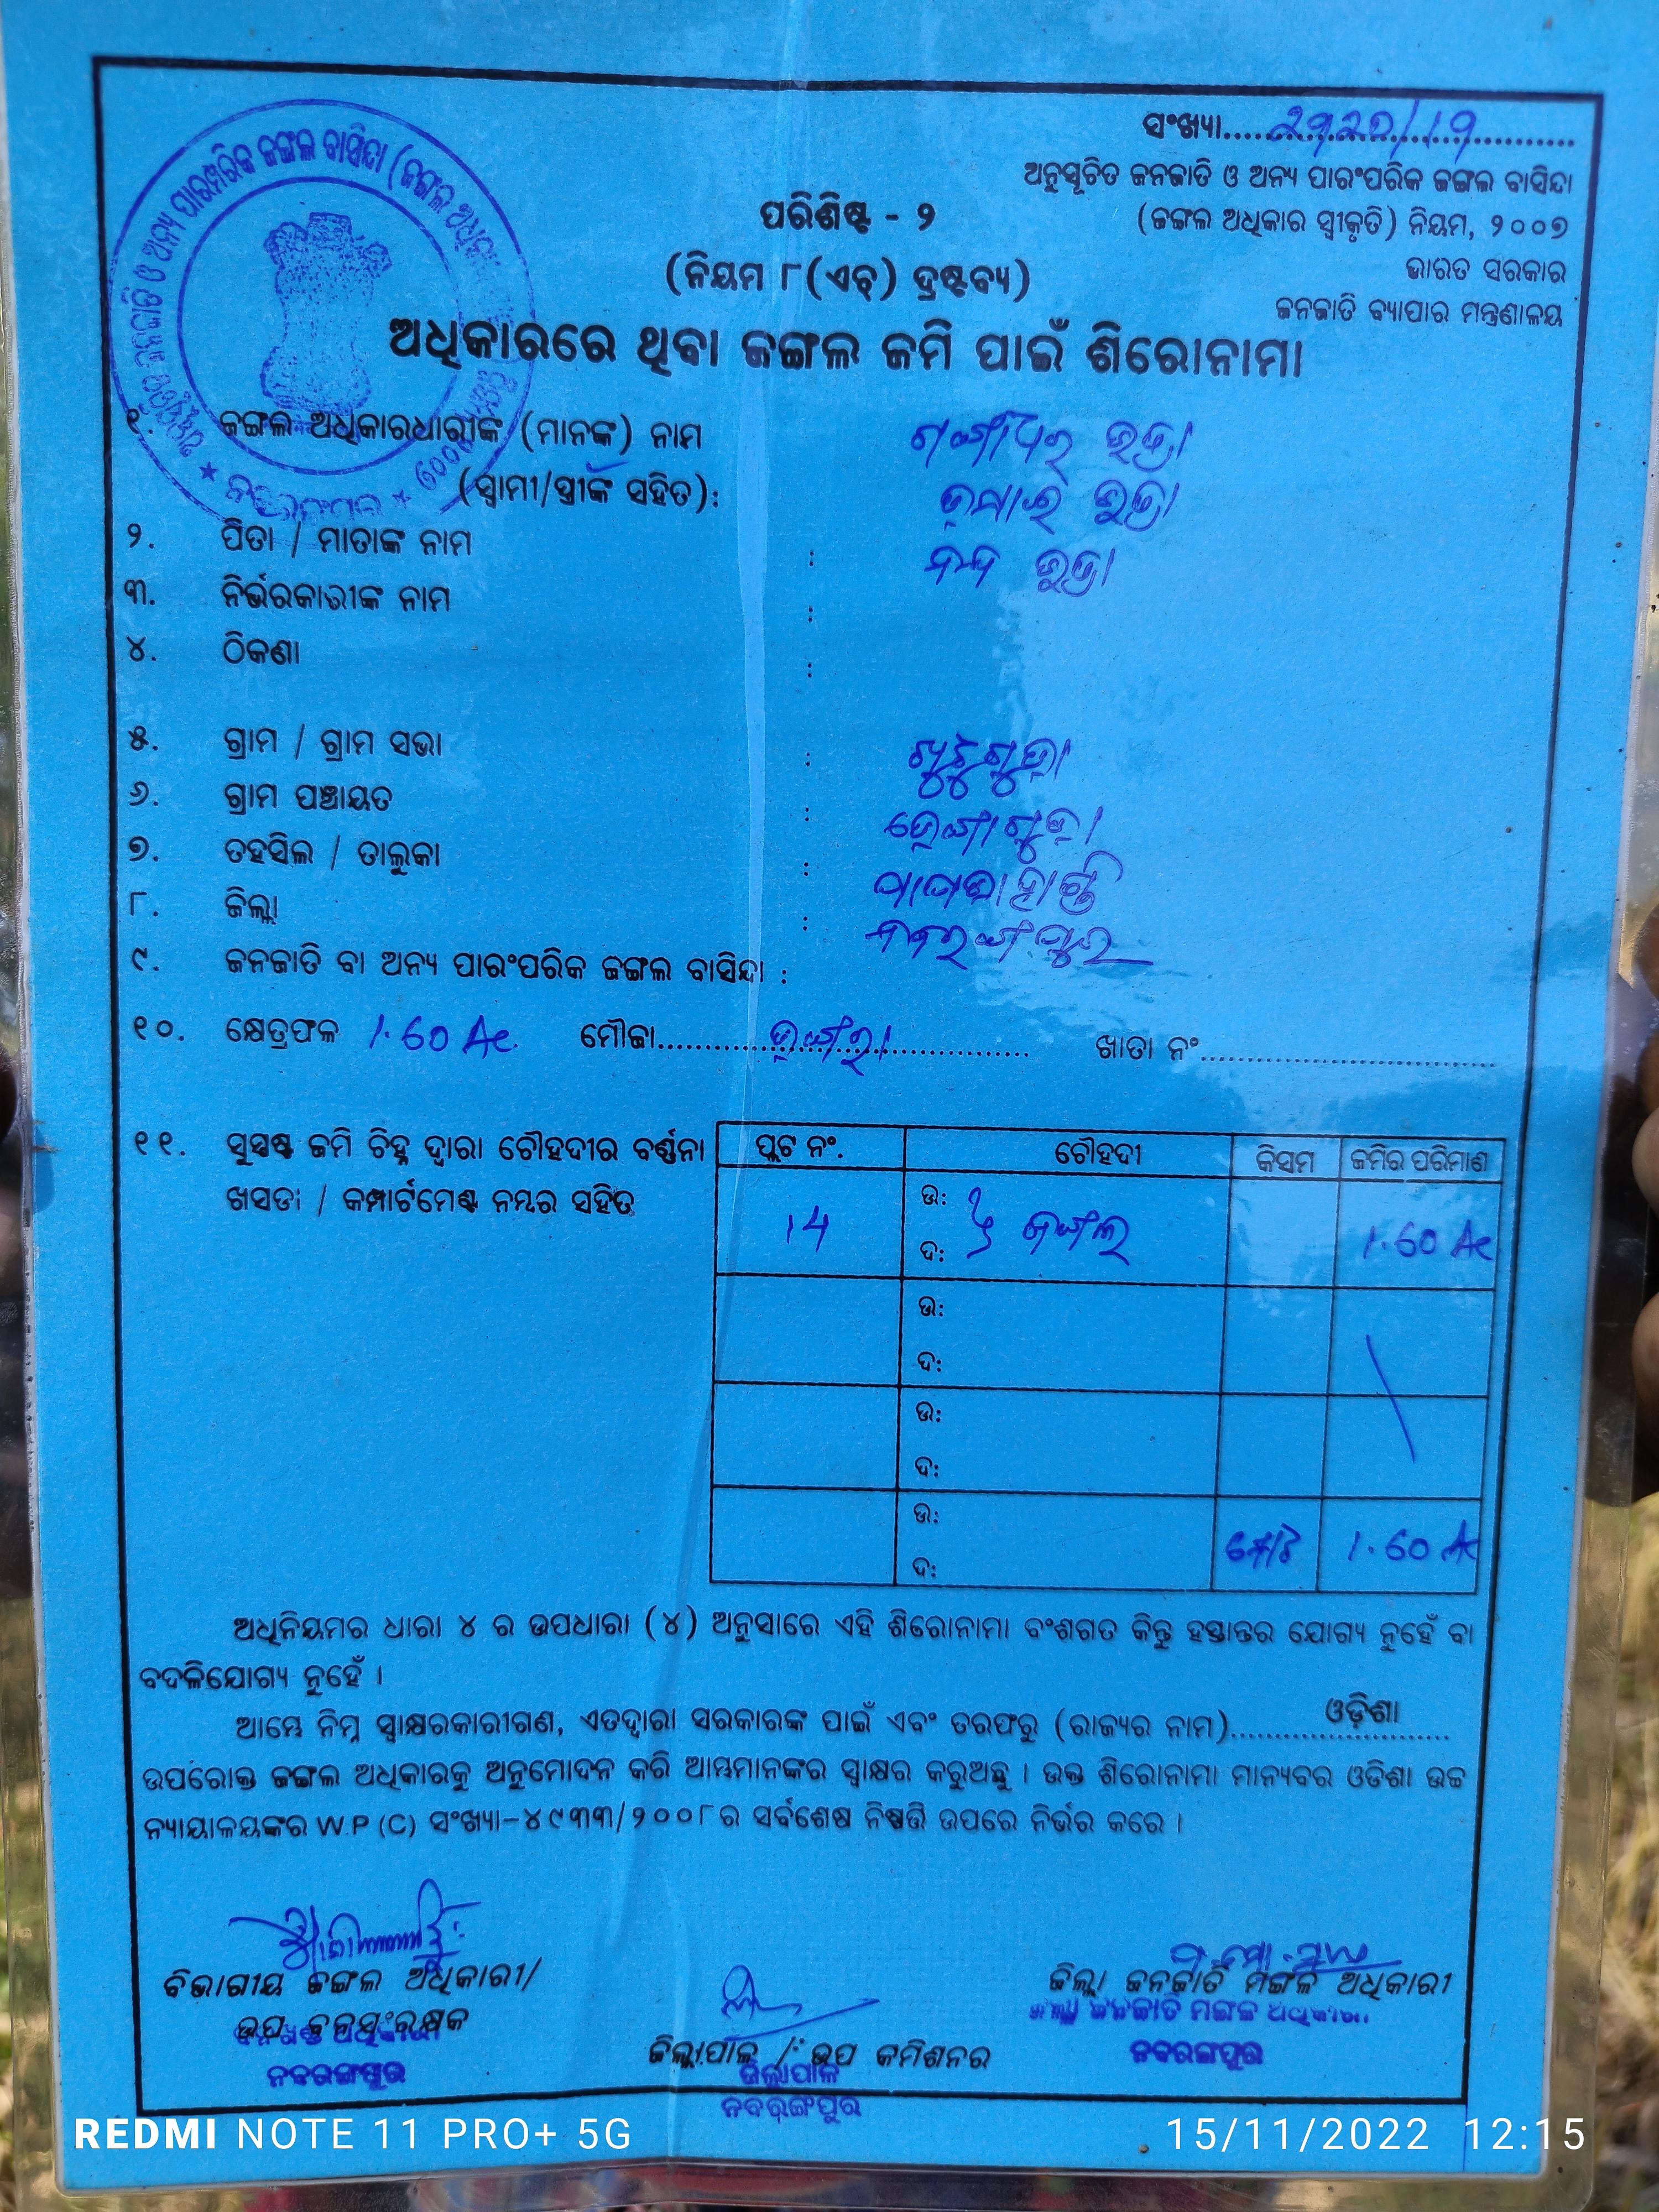 ସଂଖ୍ୟା
ଅନୁସୂଚିତ ଜନଜାତି ଓ ଅନ୍ୟ ପାରଂପରିକ ଜଙ୍ଗଲ ବାସିନ୍ଦା
(ଜଙ୍ଗଲ ଅଧିକାର ସ୍ୱୀକୃତି) ନିୟମ, ୨୦୦୭
ଭାରତ ସରକାର
ଜନଜାତି ବ୍ୟାପାର ମନ୍ତ୍ରଣାଳୟ
ପରିଶିଷ୍ଟ - ୨
(ନିୟମ ୮(ଏଚ୍) ଦ୍ରଷ୍ଟବ୍ୟ)
ଅଧିକାରରେ ଥିବା ଜଙ୍ଗଲ ଜମି ପାଇଁ ଶିରୋନାମା
୧. ଜଙ୍ଗଲ ଅଧିକାରଧାରୀଙ୍କ (ମାନଙ୍କ) ନାମ ଗଙ୍ଗାଧର ଭତ୍ରା
(ସ୍ୱାମୀ/ସ୍ତ୍ରୀଙ୍କ ସହିତ): ଭତ୍ରା
୨. ପିତା / ମାତାଙ୍କ ନାମ : ନନ୍ଦ ଭତ୍ରା
୩. ନିର୍ଭରକାରୀଙ୍କ ନାମ :
୪. ଠିକଣା :
୫. ଗ୍ରାମ / ଗ୍ରାମ ସଭା :
୬. ଗ୍ରାମ ପଞ୍ଚାୟତ :
୭. ତହସିଲ / ତାଲୁକା : ପାପଡାହାଣ୍ଡି
୮. ଜିଲ୍ଲା : ନବରଙ୍ଗପୁର
୯. ଜନଜାତି ବା ଅନ୍ୟ ପାରଂପରିକ ଜଙ୍ଗଲ ବାସିନ୍ଦା :
୧୦. କ୍ଷେତ୍ରଫଳ 1.60 Ac. ମୌଜା ଖାତା ନଂ
୧୧. ସୁସ୍ପଷ୍ଟ ଜମି ଚିହ୍ନ ଦ୍ୱାରା ଚୌହଦୀର ବର୍ଣ୍ଣନା
ଖସଡା / କମ୍ପାର୍ଟମେଣ୍ଟ ନମ୍ବର ସହିତ
ପ୍ଲଟ ନଂ. ଚୌହଦୀ କିସମ ଜମିର ପରିମାଣ
14 ଉ: ଦ: ଜଙ୍ଗଲ 1.60 Ac
ଉ:
ଦ:
ଉ:
ଦ:
ଉ:
ଦ: ମୋଟ 1.60 Ac
ଅଧିନିୟମର ଧାରା ୪ ର ଉପଧାରା (୪) ଅନୁସାରେ ଏହି ଶିରୋନାମା ବଂଶଗତ କିନ୍ତୁ ହସ୍ତାନ୍ତର ଯୋଗ୍ୟ ନୁହେଁ ବା
ବଦଳିଯୋଗ୍ୟ ନୁହେଁ ।
ଆମ୍ଭେ ନିମ୍ନ ସ୍ୱାକ୍ଷରକାରୀଗଣ, ଏତଦ୍ୱାରା ସରକାରଙ୍କ ପାଇଁ ଏବଂ ତରଫରୁ (ରାଜ୍ୟର ନାମ) ଓଡ଼ିଶା
ଉପରୋକ୍ତ ଜଙ୍ଗଲ ଅଧିକାରକୁ ଅନୁମୋଦନ କରି ଆମ୍ଭମାନଙ୍କର ସ୍ୱାକ୍ଷର କରୁଅଛୁ । ଉକ୍ତ ଶିରୋନାମା ମାନ୍ୟବର ଓଡିଶା ଉଚ୍ଚ
ନ୍ୟାୟାଳୟଙ୍କର W.P (C) ସଂଖ୍ୟା-୪୯୩୩/୨୦୦୮ର ସର୍ବଶେଷ ନିଷ୍ପତ୍ତି ଉପରେ ନିର୍ଭର କରେ ।
ବିଭାଗୀୟ ଜଙ୍ଗଲ ଅଧିକାରୀ/
ଉପ ବନସଂରକ୍ଷକ
ନବରଙ୍ଗପୁର
ଜିଲ୍ଲାପାଳ / ଉପ କମିଶନର
ଜିଲ୍ଲାପାଳ
ନବରଙ୍ଗପୁର
ଜିଲ୍ଲା ଜନଜାତି ମଙ୍ଗଳ ଅଧିକାରୀ
ଜିଲ୍ଲା ଜନଜାତି ମଙ୍ଗଳ ଅଧିକାରୀ
ନବରଙ୍ଗପୁର
REDMI NOTE 11 PRO+ 5G
15/11/2022 12:15